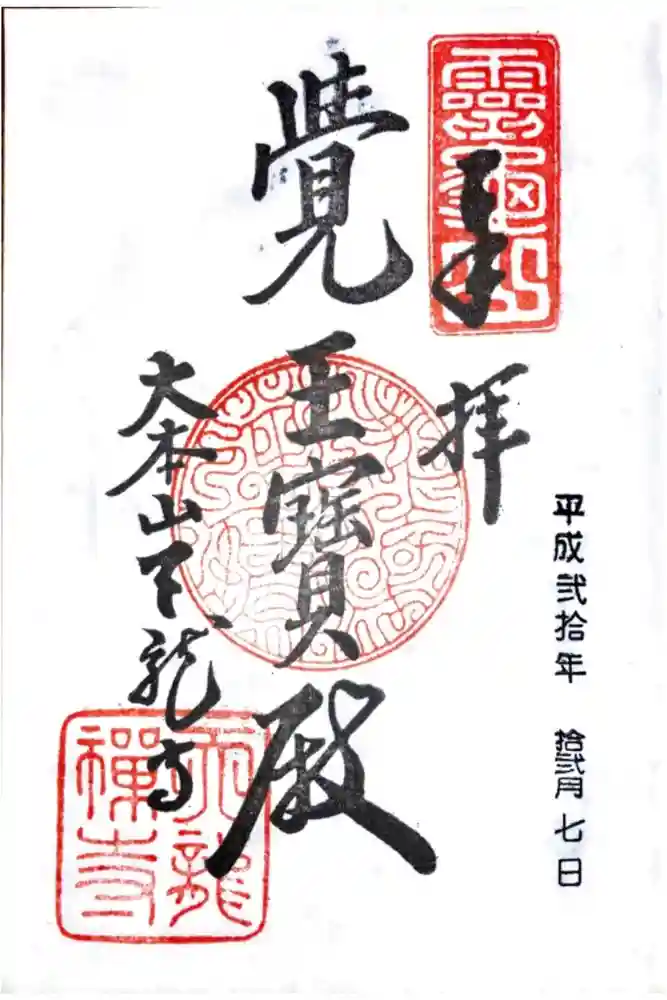 平成弐拾年 拾弐月七日
奉拝
靈龜山
覺王寳殿
大本山天龍寺
天龍禪寺